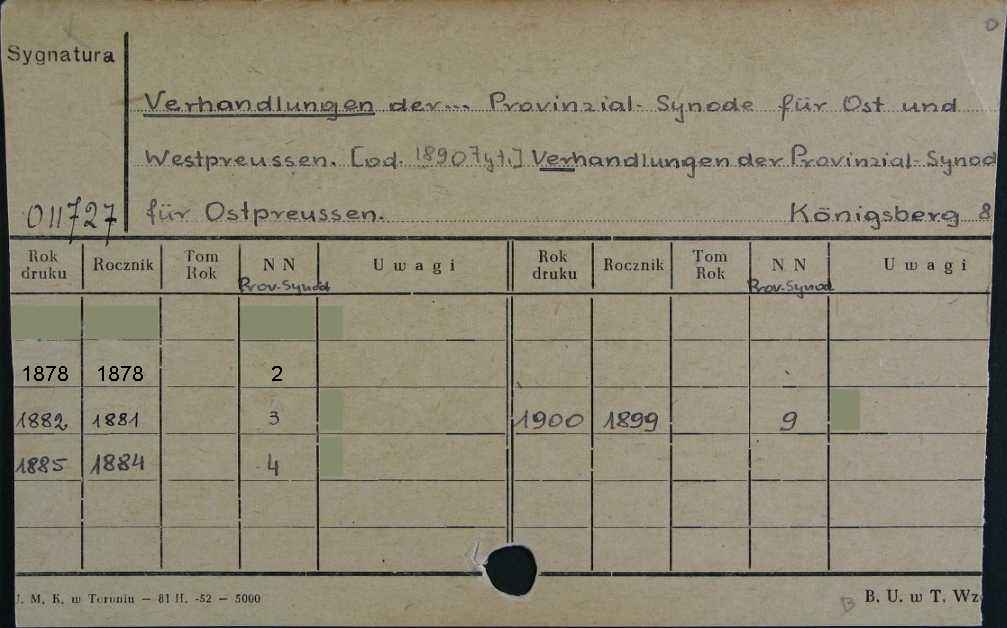 Sygnatura
Verhandlungen der... Provinzial-Synode für Ost und
Westpreussen. [od. 1890 Tyt.] Verhandlungen der Provinzial-Synod
011727 für Ostpreussen. Königsberg 8
Rok druku Rocznik Tom Rok NN Uwagi Rok druku Rocznik Tom Rok NN Uwagi
Prov.-Synod Prov.-Synod
1878 1878 2
1882 1881 3 1900 1899 9
1885 1884 4
U. M. K. w Toruniu — 81 H. -52 — 5000 B B. U. w T. Wz